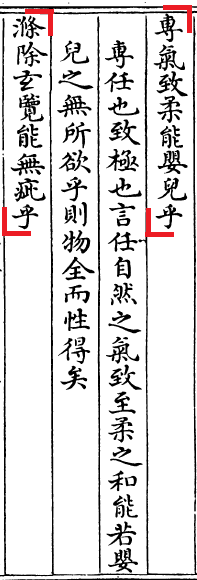 專氣致柔能嬰兒乎
專任也致極也言任自然之氣致至柔之和能若嬰
兒之無所欲乎則物全而性得矣
滌除玄覽能無疵乎